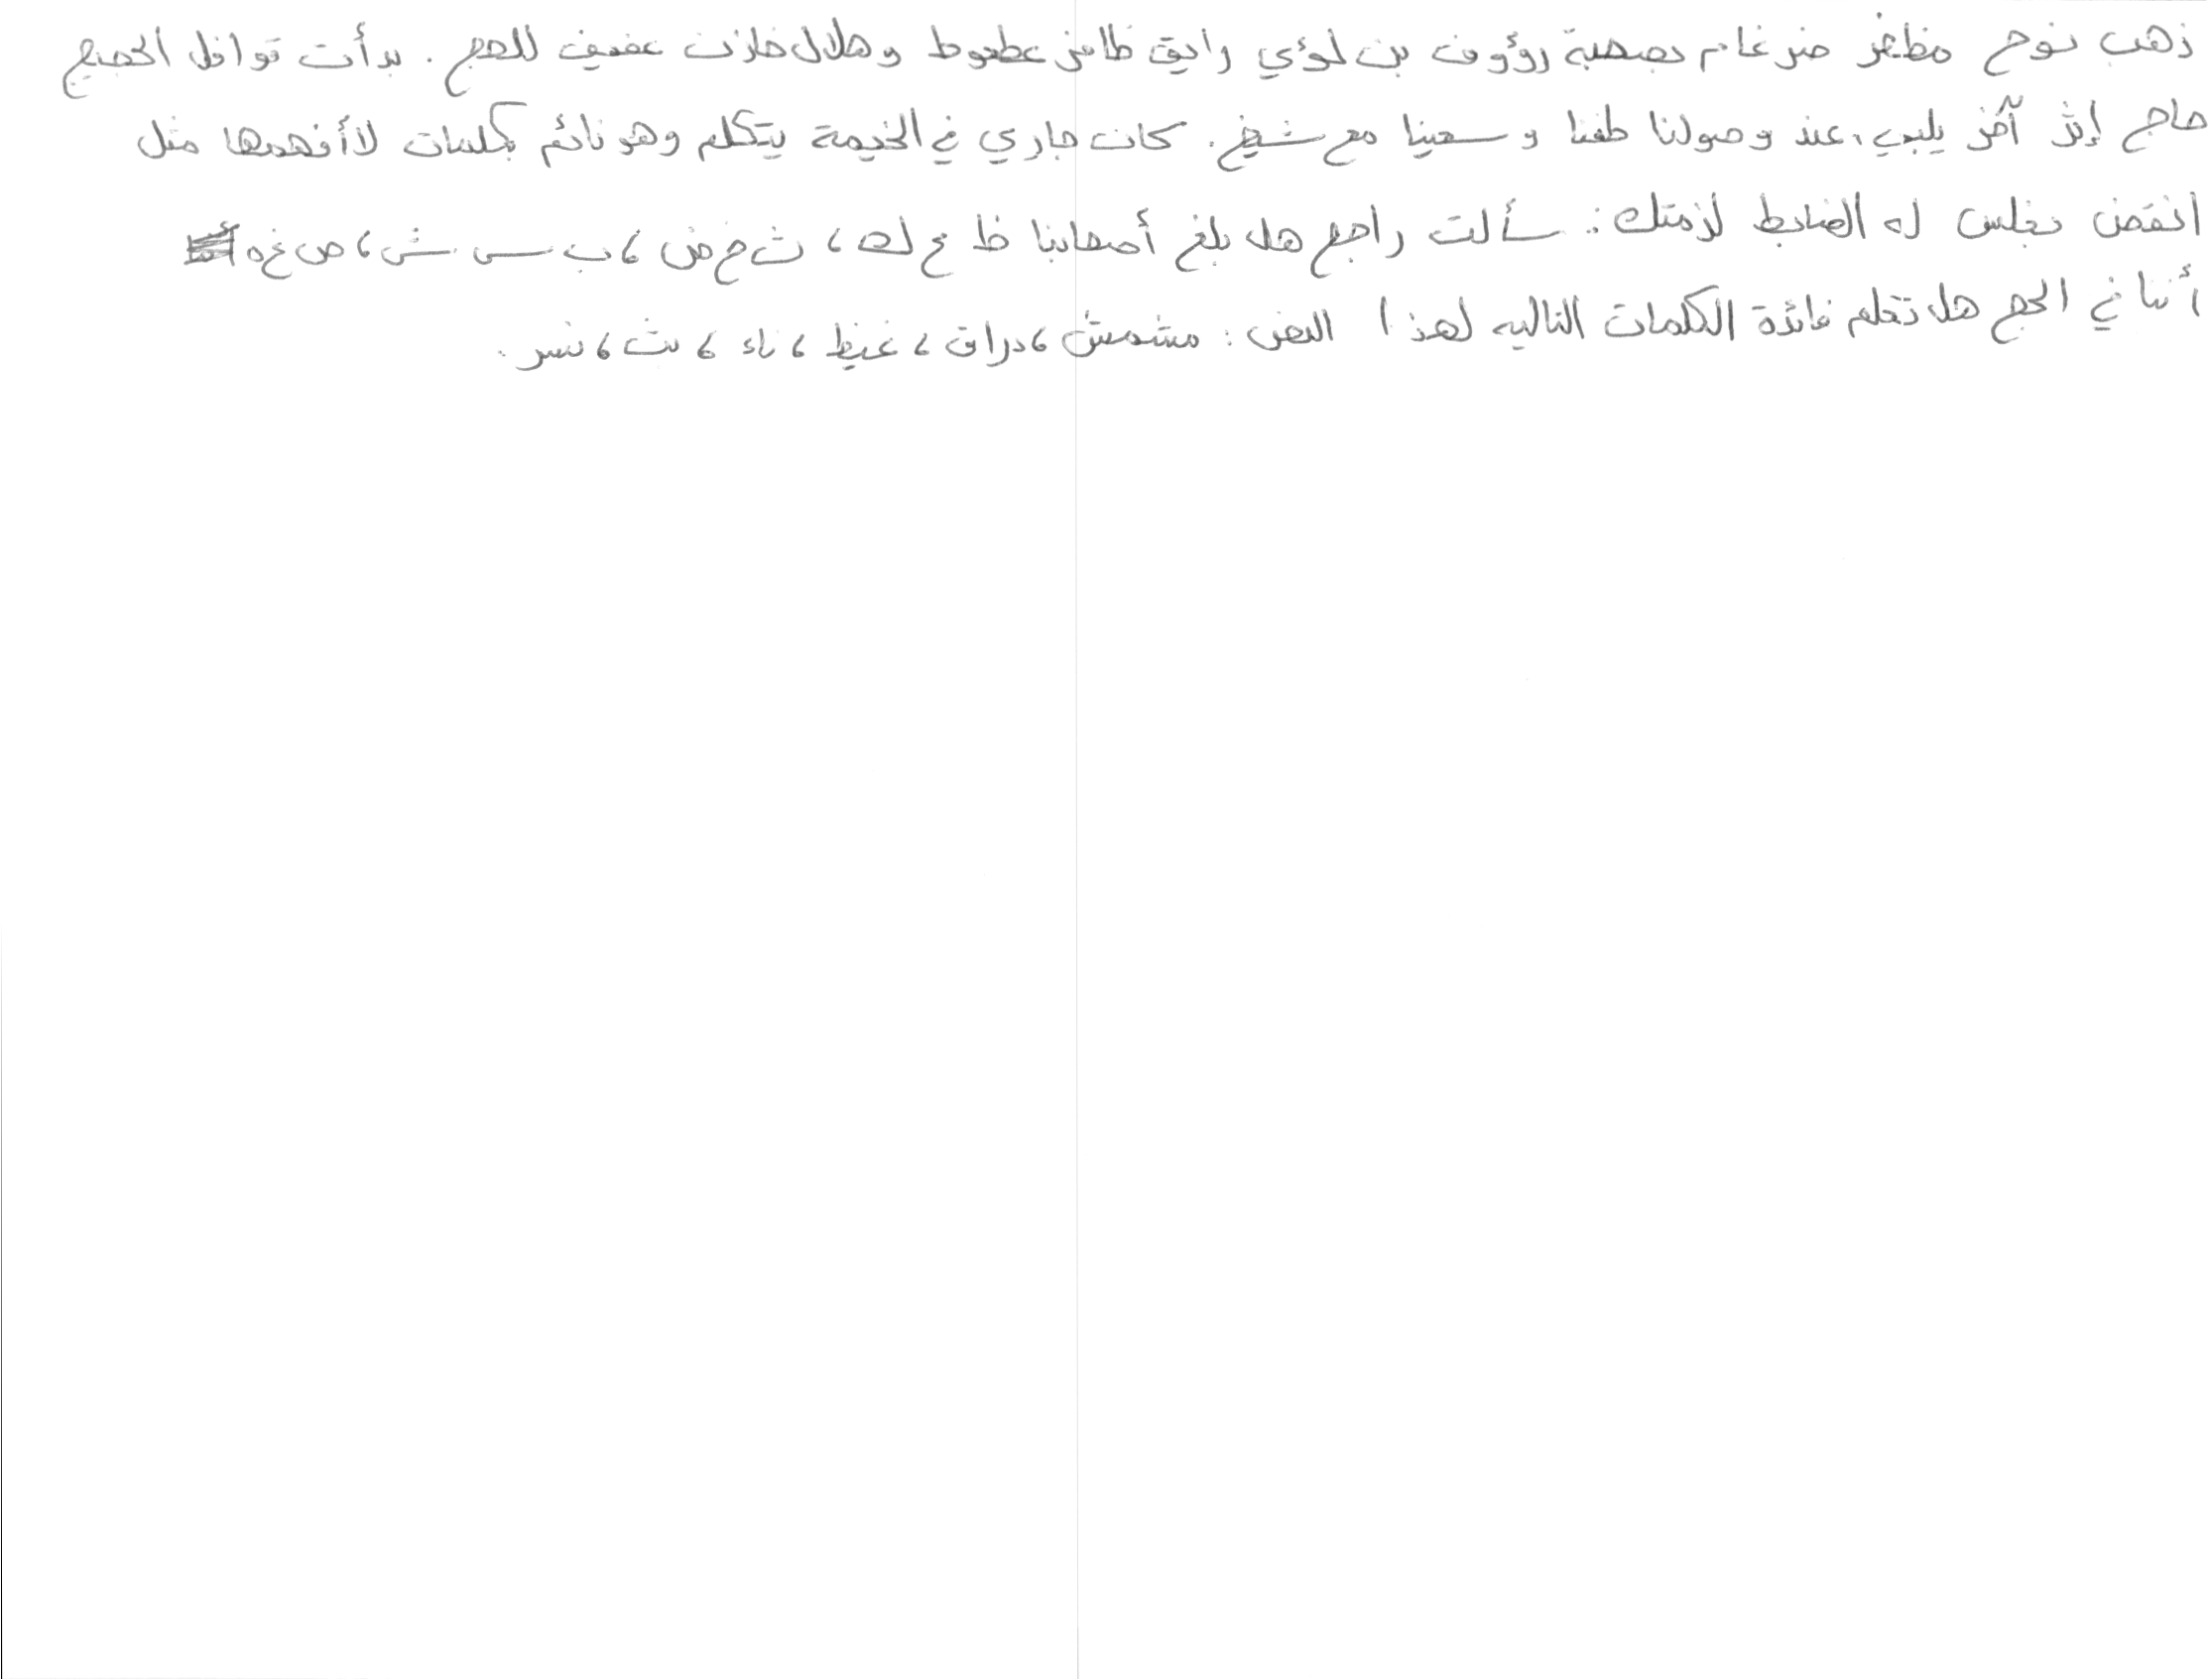 ذهب نوح مظفر ضرغام بصحبة رؤوف بن لؤي رايق ظافر عطعوط و هلال خازن عفيف للحج . بدأت قوافل الحجيج
حاج إثر آخر يلبي، عند وصولنا طفنا و سعينا مع شيخ. كان جاري في الخيمة يتكلم وهو نائم بكلمات لا أفهمها مثل
انقض نجلس له الضابط لزمتك: سألت راجح هل بلغ أصحابنا ظ ع ك ، ث خ ض ، ب س ش ، ص غ ه
أننا في الحج هل تعلم فائدة الكلمات التاليه لهذا النص : مشمش ، دراق ، غيظ ، ناء ، بث ، نسر .